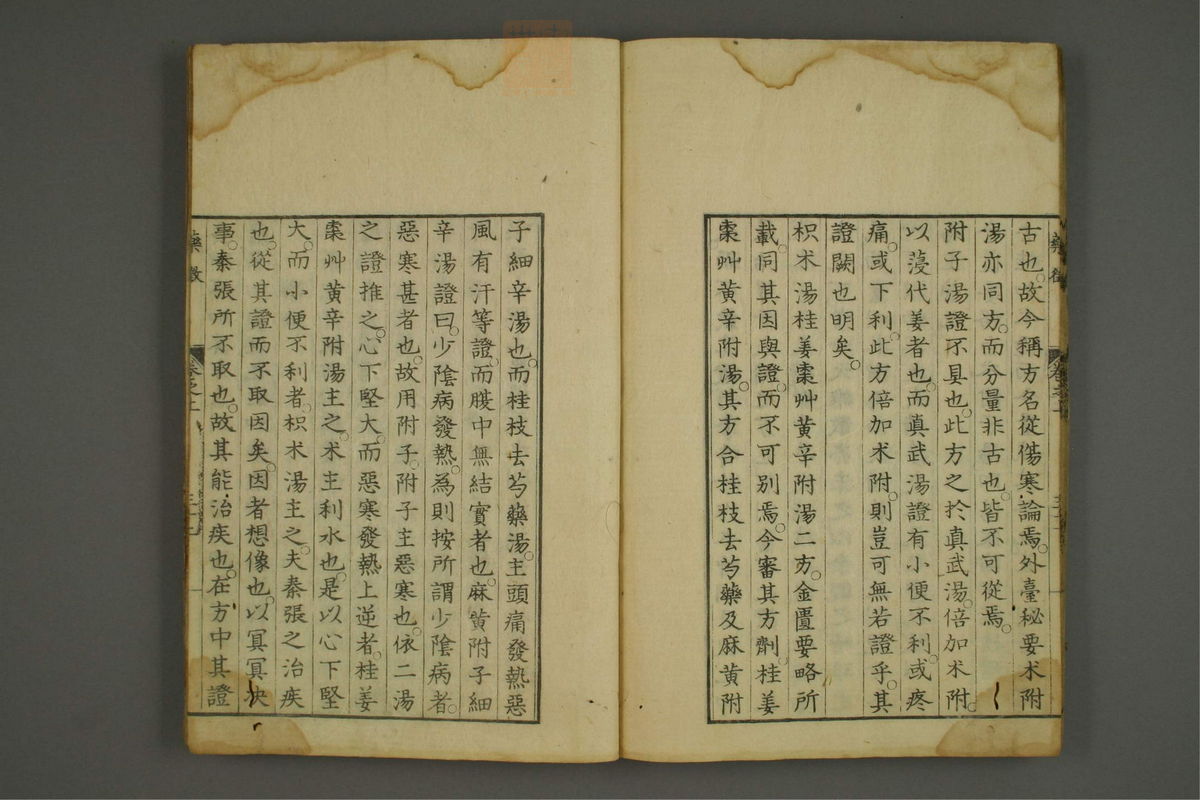 古也。故今稱方名從傷寒論焉。外臺秘要朮附
湯亦同方。而分量非古也。皆不可從焉。
附子湯證不具也。此方之於眞武湯。倍加朮附。
以蓡代姜者也。而眞武湯證有小便不利。或疼
痛。或下利。此方倍加朮附。則豈可無若證乎。其
證闕也明矣。
枳朮湯桂姜棗艸黃辛附湯二方。金匱要略所
載。同其因與證。而不可別焉。今審其方劑。桂姜
棗艸黃辛附湯。其方合桂枝去芍藥及麻黃附
子細辛湯也。而桂枝去芍藥湯。主頭痛發熱惡
風有汗等證。而腹中無結實者也。麻黃附子細
辛湯證曰。少陰病發熱。為則按所謂少陰病者。
惡寒甚者也。故用附子。附子主惡寒也。依二湯
之證推之。心下堅大。而惡寒發熱上逆者。桂姜
棗艸黃辛附湯主之。朮主利水也。是以心下堅
大。而小便不利者。枳朮湯主之。夫秦張之治疾
也。從其證而不取因矣。因者想像也。以冥冥決
事。秦張所不取也。故其能治疾也。在方中其證
藥徵
卷之上